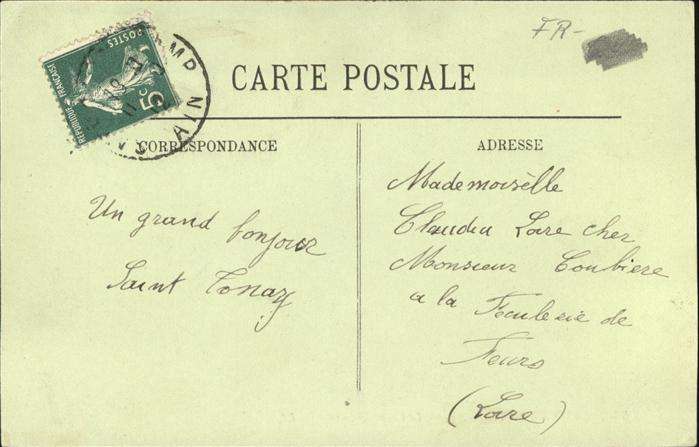 FR-
POSTES
REPUBLIQUE FRANÇAISE
5c
AMP
AIN
CARTE POSTALE
CORRESPONDANCE
ADRESSE
Un grand bonjour
Saint Tonay
Mademoiselle
Claudia Lore cher
Monsieur Coubiere
a la Feculerie de
Feurs
(Lore)